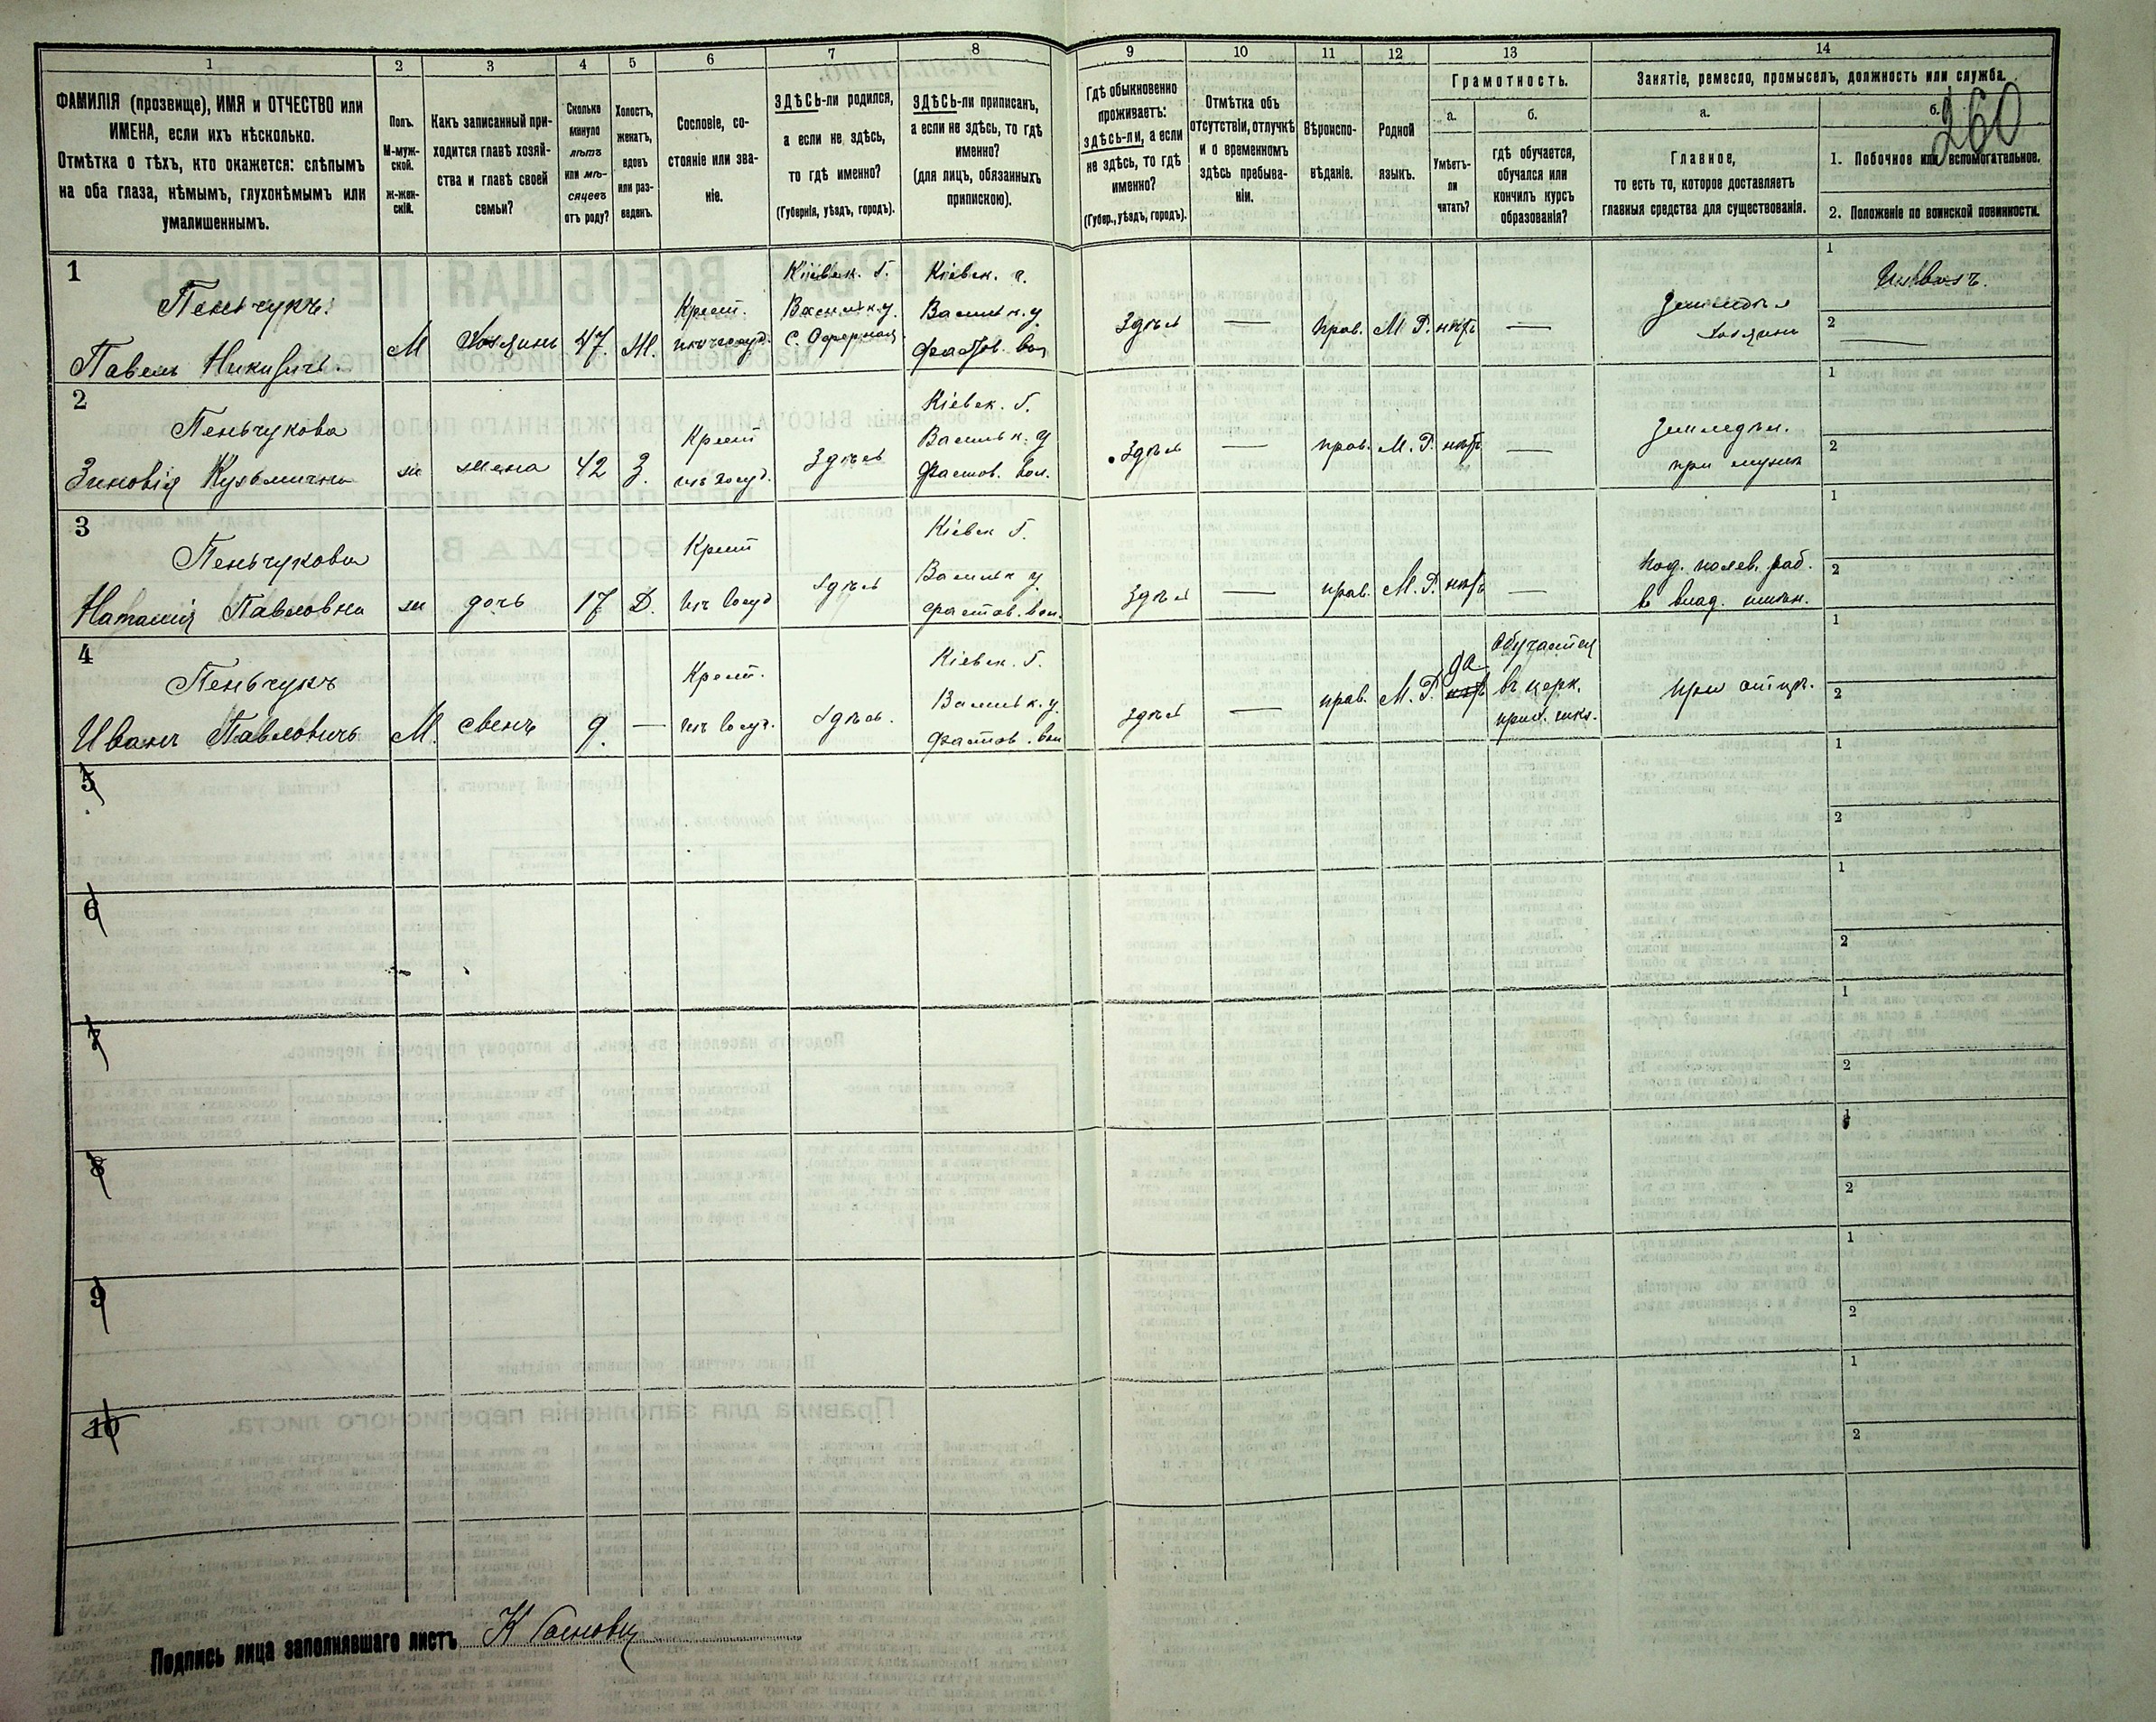 1 2 3 4 5 6 7 8 9 10 11 12 13 14
ФАМИЛІЯ (прозвище), ИМЯ и ОТЧЕСТВО или
ИМЕНА, если ихъ нѣсколько.
Отмѣтка о тѣхъ, кто окажется: слѣпымъ
на оба глаза, нѣмымъ, глухонѣмымъ или
умалишеннымъ.
Полъ.
М-муж-
ской.
Ж-жен-
скій.
Какъ записанный при-
ходится главѣ хозяй-
ства и главѣ своей
семьи?
Сколько
минуло
лѣтъ
или мѣ-
сяцевъ
отъ роду?
Холостъ,
женатъ,
вдовъ
или раз-
веденъ.
Сословіе, со-
стояніе или зва-
ніе.
ЗДѢСЬ-ли родился,
а если не здѣсь,
то гдѣ именно?
(Губернія, уѣздъ, городъ).
ЗДѢСЬ-ли приписанъ,
а если не здѣсь, то гдѣ
именно?
(для лицъ, обязанныхъ
припискою).
Гдѣ обыкновенно
проживаетъ:
здѣсь-ли, а если
не здѣсь, то гдѣ
именно?
(Губер., уѣздъ, городъ).
Отмѣтка объ
отсутствіи, отлучкѣ
и о временномъ
здѣсь пребыва-
ніи.
Вѣроиспо-
вѣданіе.
Родной
языкъ.
Грамотность.
а.
Умѣетъ-
ли
читать?
б.
гдѣ обучается,
обучался или
кончилъ курсъ
образованія?
Занятіе, ремесло, промыселъ, должность или служба.
а.
Главное,
то есть то, которое доставляетъ
главныя средства для существованія.
б.
260
1. Побочное или вспомогательное.
2. Положеніе по воинской повинности.
1
Пеньчукъ
Павелъ
М Хозяинъ 47. Ж.
Крест.
Кіевск. Г.
Васильк. у.
Кіевск. г.
Васильк. у
Фастов. вол
Здѣсь — прав. М. Р. нѣтъ —
Хозяинъ
1
2
2
Пеньчукова
Зиновія Кузьмична
ж жена 42 З.
Крест
изъ госуд.
Здѣсь
Кіевск. Г.
Васильк. у
Фастов. вол.
Здѣсь — прав. М. Р. нѣтъ —
Земледѣл.
при мужѣ
1
2
3
Пеньчукова
Наталія Павловна
ж дочь 17 Д.
Крест
изъ госуд
Здѣсь
Кіевск Г.
Васильк у
Фастов. вол.
Здѣсь — прав. М. Р. нѣтъ —
Под. полев. раб.
1
2
4
Пеньчукъ
Иванъ Павловичъ
М. 9. —
Крест.
изъ госуд.
Здѣсь.
Кіевск. Г.
Васильк. у.
Фастов. вол
Здѣсь — прав. М. Р. да нѣтъ
Обучается
въ церк.
прих. шкл.
при отцѣ.
1
2
5
1
2
6
1
2
7
1
2
8
1
2
9
1
2
10
1
2
Подпись лица заполнявшаго листъ